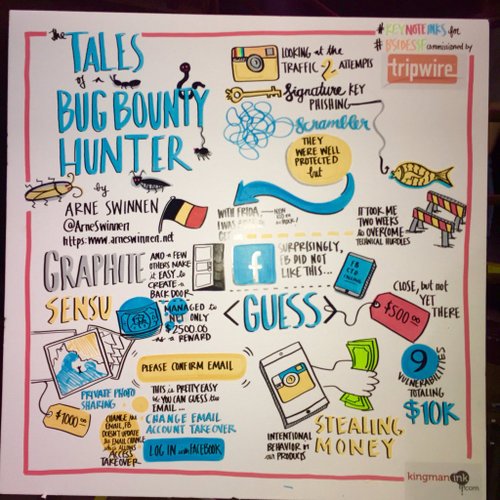 the TALES
of a
BUG BOUNTY
HUNTER
by
ARNE SWINNEN
@ArneSwinnen
https:www.arneswinnen.net
LOOKING at the
TRAFFIC 2 ATTEMPTS
Signature KEY
PHISHING
Scrambler
THEY
WERE WELL
PROTECTED
but
#KEYNOTEINKS for
#BSIDESSF commissioned by
tripwire
WITH FRIDA
I WAS
IT TOOK ME
TWO WEEKS
to OVERCOME
TECHNICAL HURDLES
GRAPHITE
SENSU
AND A FEW
OTHERS MAKE
it EASY to
CREATE a
BACK DOOR
MANAGED to
NET ONLY
$2500.00
as a REWARD
f
SURPRISINGLY,
FB DID NOT
LIKE THIS...
FB
CTO
<GUESS>
CLOSE, but not
YET
THERE
$500
PLEASE CONFIRM EMAIL
PRIVATE PHOTO
SHARING
$1000
CHANGE the
EMAIL, FB
DOESN'T UPDATE
the EMAIL CHANGE
which ALLOWS
ACCESS
TAKEOVER
THIS is PRETTY EASY
bc YOU CAN GUESS the
EMAIL...
CHANGE EMAIL
ACCOUNT TAKEOVER
LOG IN with FACEBOOK
INTENTIONAL
BEHAVIOR in
our PRODUCTS
STEALING
MONEY
9
VULNERABILITIES
TOTALING
$10K
kingmanink
.com